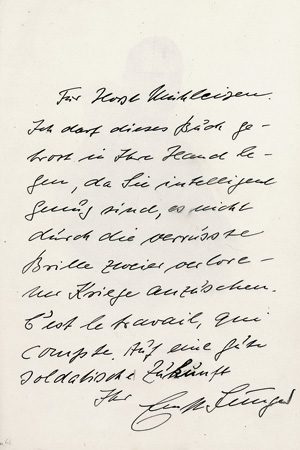 Für Horst Mühleisen.
Ich darf dieses Buch ge-
trost in Ihre Hand le-
gen, da Sie intelligent
genug sind, es nicht
durch die verrusste
Brille zweier verlore-
ner Kriege anzuschen.
C'est le travail, qui
compte. Auf eine gute
soldatische Zukunft
Ihr Ernst Jünger